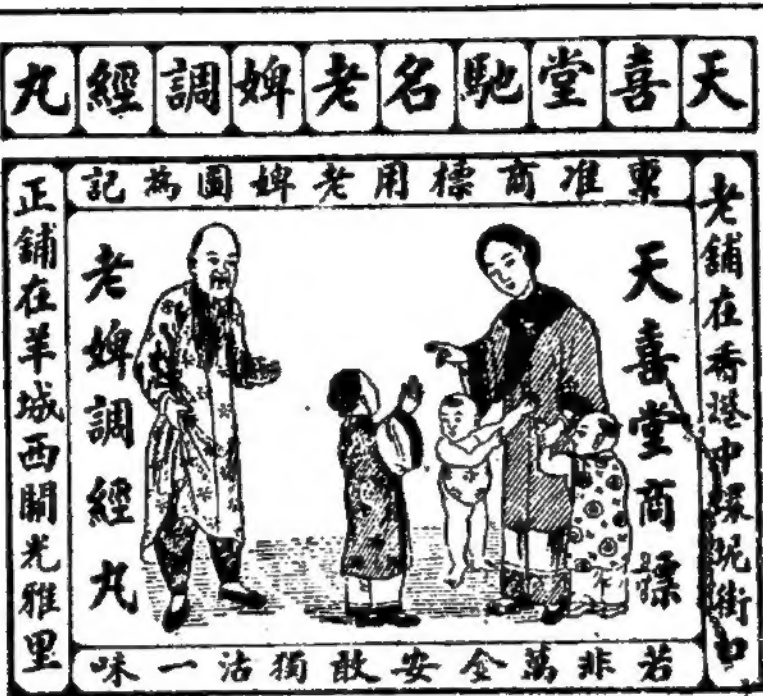 天喜堂馳名老婢調經丸
稟准商標用老婢圖為記
老舖在香港中環昵街口
天喜堂商標
老婢調經丸
正舖在羊城西關光雅里
若非萬全安敢獨沽一味